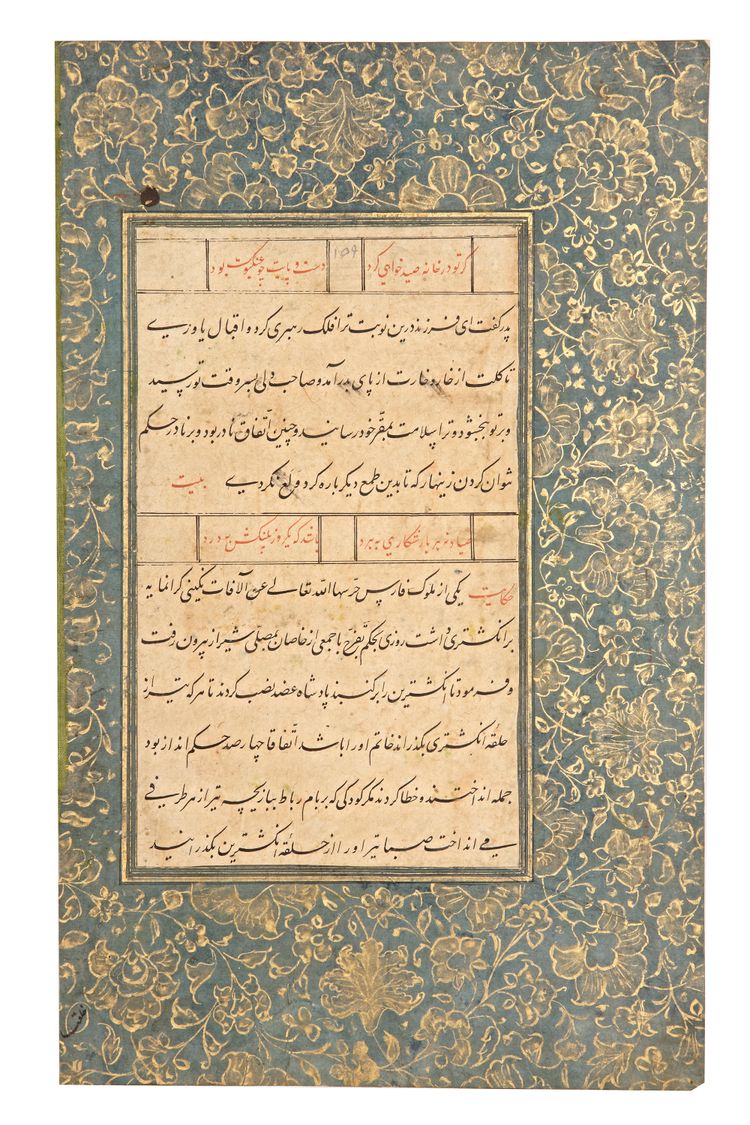 گر تو در خانه صید خواهی کرد دست و پایت چو عنکبوت بود
۱۵۹
پدر گفت ای فرزند درین نوبت ترا فلک رهبری کرد و اقبال یاوری
تا گلت از خار و خارت از پای بدر آمد و صاحب دلی بسر وقت تو رسید
و بر تو ببخشود و ترا بسلامت بمقر خود رسانید و چنین اتفاق نادر بود و بر نادر حکم
نتوان کردن زینهار که تا بدین طمع دیگر باره گرد ولع نگردی بیت
صیاد نه هر بار شکاری ببرد باشد که یکروز پلنگش بدرد
حکایت یکی از ملوک فارس حرسها الله تعالی عن الافات نگینی گرانمایه
بر انگشتری داشت روزی بحکم تفرج با جمعی از خاصان بمصلی شیراز بیرون رفت
و فرمود تا انگشترین را بر گنبد پادشاه عضد نصب کردند تا هر که تیر از
حلقه انگشتری بگذراند خاتم او را باشد اتفاقا چهار صد حکم انداز بود
جمله انداختند و خطا کردند مگر کودکی که بر بام رباط ببازیچه تیر از هر طرفی
می انداخت صبا تیر او را از حلقه انگشترین بگذرانید